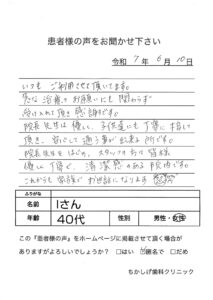 患者様の声をお聞かせ下さい
令和 7年 6月 10日
いつも ご利用させて頂いてます。
急な治療でお願いにも関わらず
受け入れて頂き感謝です。
院長先生は優しく、子供達にも丁寧に接して
頂き、安心して通う事が出来る所です。
院長先生をはじめ、スタッフの方々皆様
優しく丁寧で、清潔感のある院内です。
これからも家族でお世話になります。
ふりがな
名前 Iさん
年齢 40代 性別 男性・女性
この『患者様の声』をホームページに掲載させて頂く場合が
ありますがよろしいでしょうか? □はい ☑匿名で □だめ
ちかしげ歯科クリニック